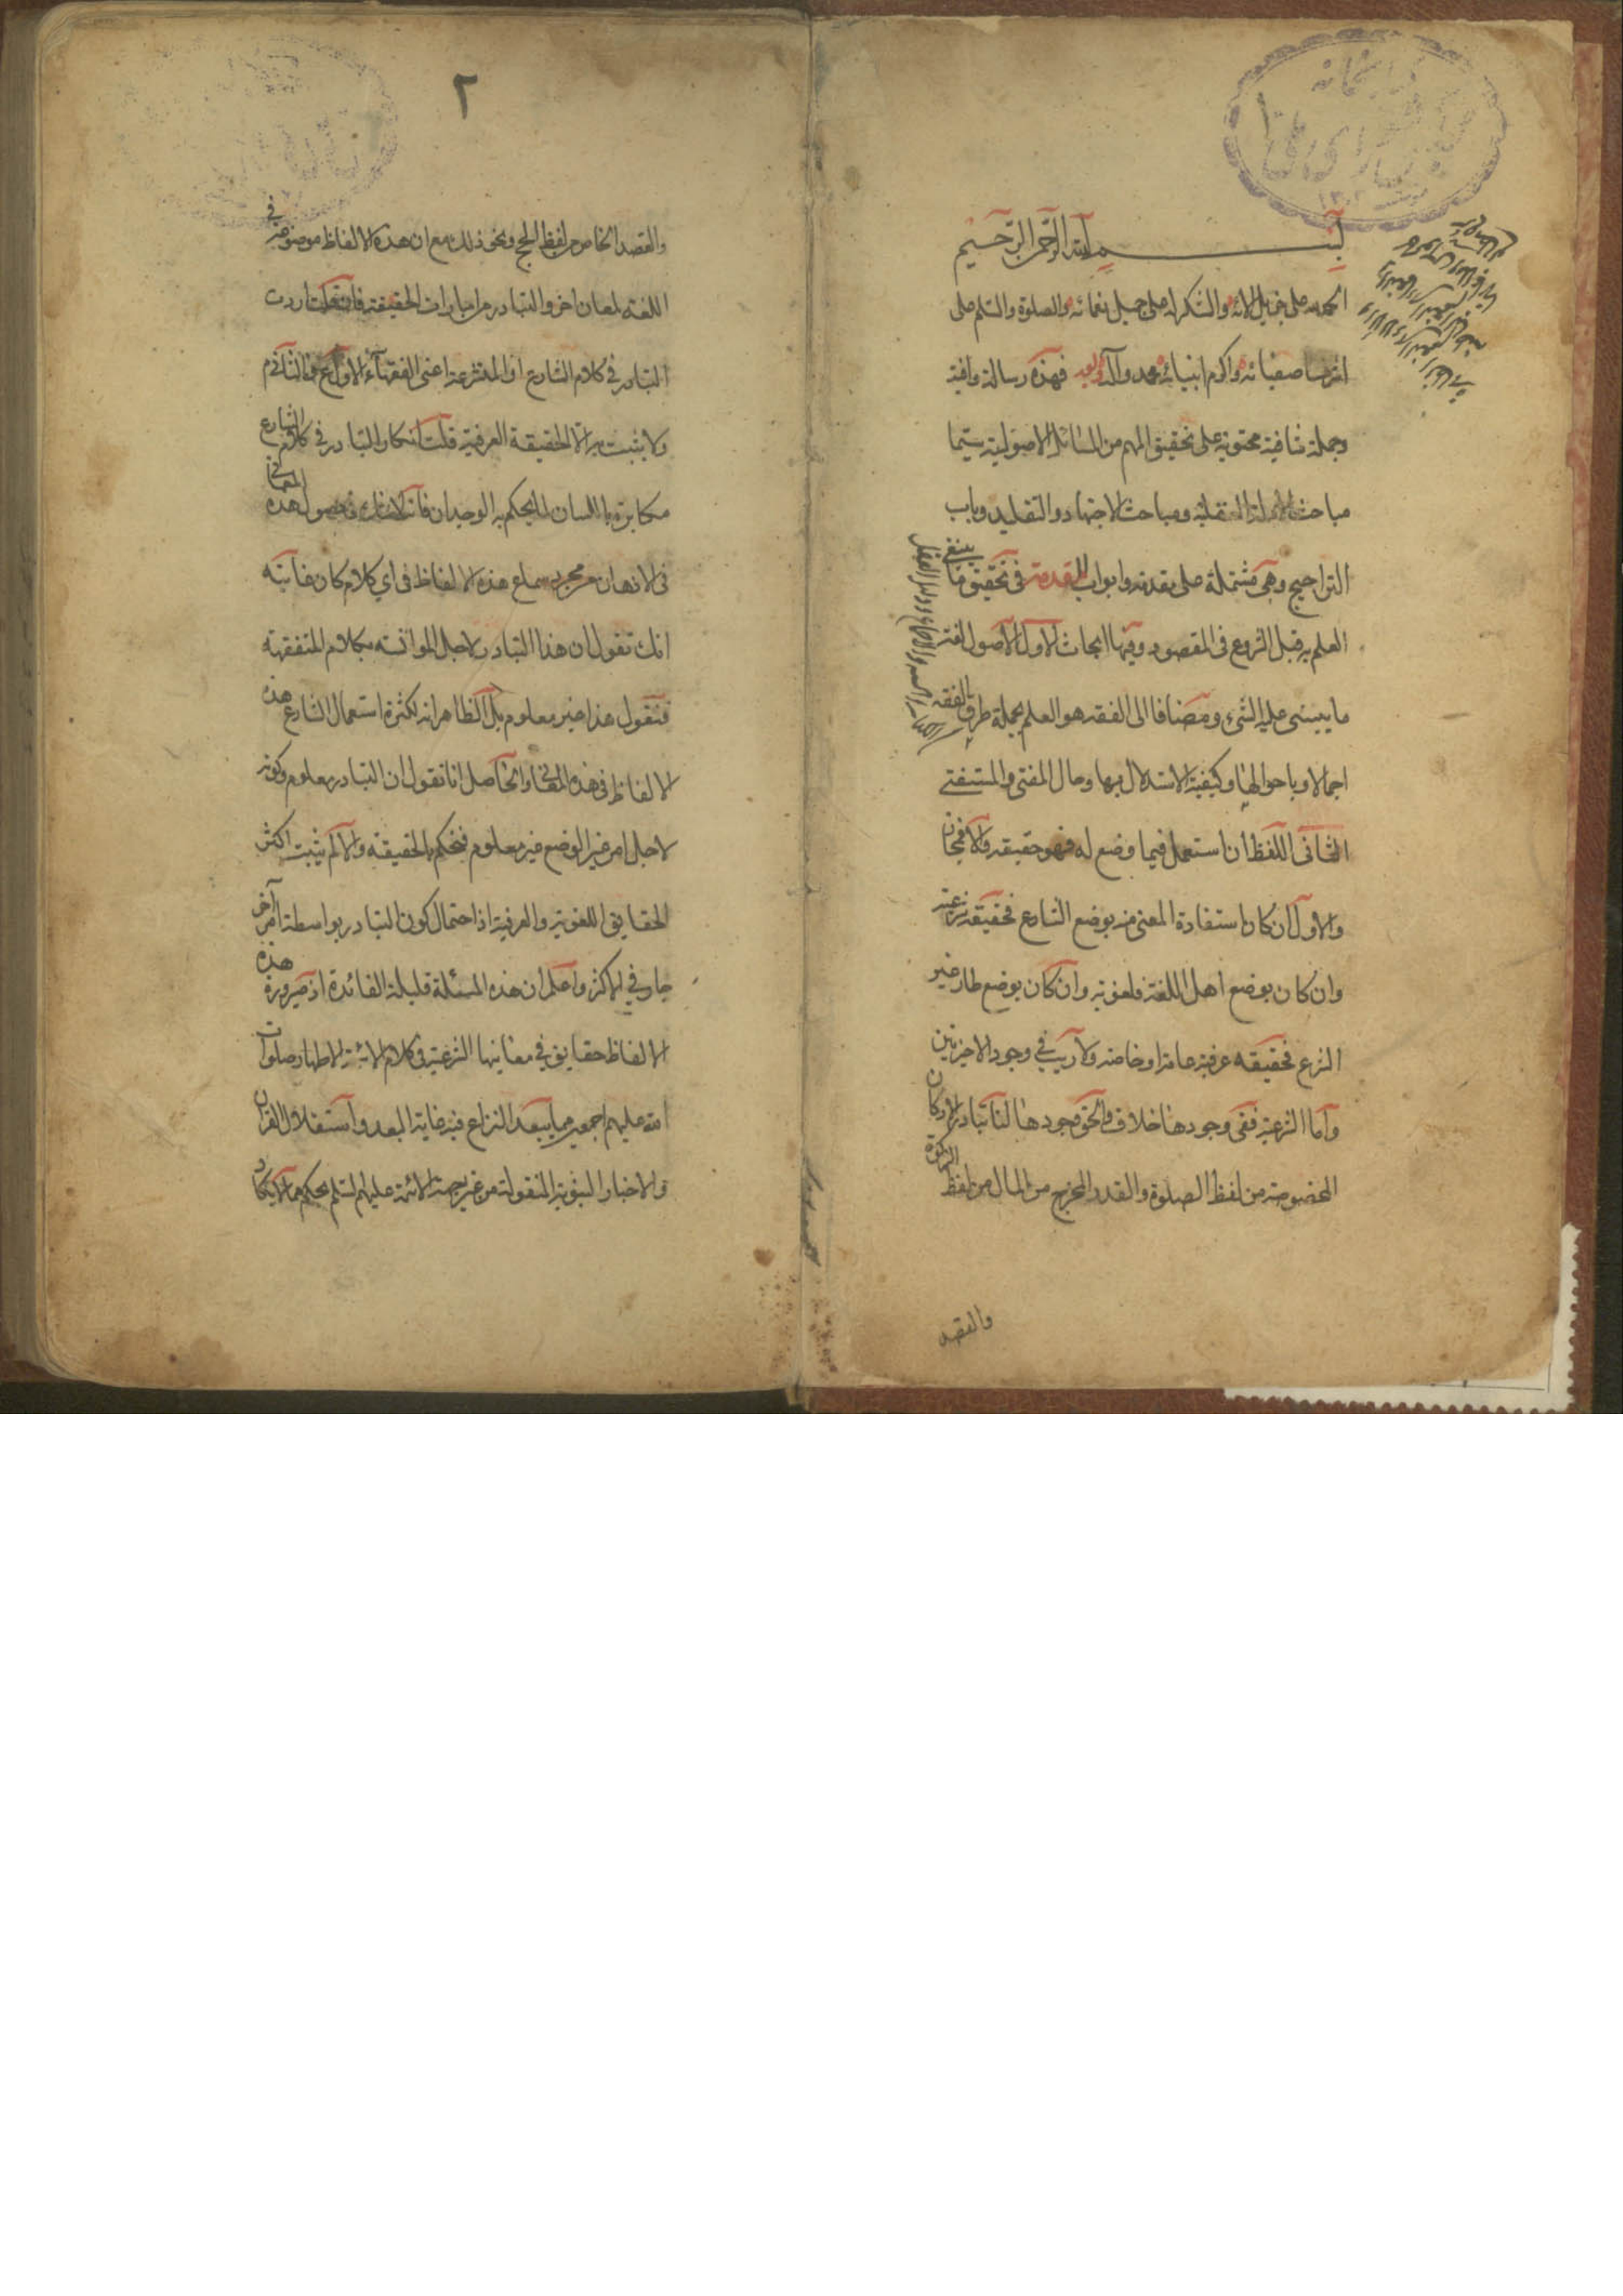 بسم الله الرحمن الرحيم
الحمد لله على جزيل آلائه والشكر له على جميل نعمائه والصلوة والسلم على
اشرف اصفيائه واكرم انبيائه محمد وآله وبعد فهذه رسالة وافية
وجملة شافية محتوية على تحقيق المهم من المسائل الاصولية سيما
مباحث الادلة العقلية ومباحث الاجتهاد والتقليد وباب
التراجيح وهي مشتملة على مقدمة وابواب المقدمة في تحقيق ما ينبغي
العلم به قبل الشروع في المقصود وفيها ابحاث الاول الاصول لغة
ما يبتنى عليه الشيء ومضافا الى الفقه هو العلم بجملة طرق الفقه
اجمالا وباحوالها وكيفية الاستدلال بها وحال المفتي والمستفتي
الثاني اللفظ ان استعمل فيما وضع له فهو حقيقة والا فمجاز
والاول ان كان استفادة المعنى منه بوضع الشارع فحقيقة شرعية
وان كان بوضع اهل اللغة فلغوية وان كان بوضع طار غير
الشرع فحقيقة عرفية عامة او خاصة ولا ريب في وجود الاخيرتين
واما الشرعية ففي وجودها خلاف والحق وجودها لنا تبادر الاركان
المخصوصة من لفظ الصلوة والقدر المخرج من المال من لفظ الزكوة
والقصد
٢
والقصد الخاص من لفظ الحج ونحو ذلك مع ان هذه الالفاظ موضوعة في
اللغة لمعان اخر والتبادر من امارات الحقيقة فان قلت اردت
التبادر في كلام الشارع او المتشرعة اعني الفقهاء الاول مم والثاني م
ولا يثبت به الا الحقيقة العرفية قلت انكار التبادر في كلام الشارع
مكابرة باللسان لما يحكم به الوجدان فانه لا شك في حصول هذه المعاني
في الاذهان من مجرد سماع هذه الالفاظ في اي كلام كان غايته
انك تقول ان هذا التبادر لاجل المؤانسة بكلام المتفقهة
فنقول هذا غير معلوم بل الظاهر انه لكثرة استعمال الشارع هذه
الالفاظ في هذه المعاني والحاصل انا نقول ان التبادر معلوم وكونه
لاجل امر غير الوضع غير معلوم فنحكم بالحقيقة والا لم يثبت اكثر
الحقايق اللغوية والعرفية اذ احتمال كون التبادر بواسطة امر آخر
جار في الاكثر واعلم ان هذه المسئلة قليلة الفائدة اذ صيرورة هذه
الالفاظ حقايق في معانيها الشرعية في كلام الائمة الاطهار صلوات
الله عليهم اجمعين مما يبعد النزاع فيه غاية البعد واستقلال القران
والاخبار النبوية المنقولة من غير جهة الائمة عليهم السلم بحكم مما لا يكاد